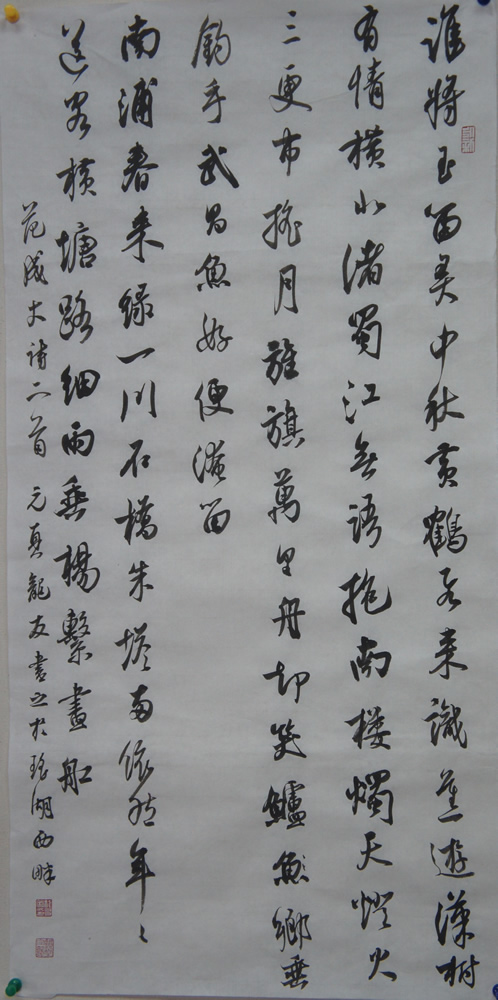 誰將玉笛弄中秋黃鶴飛來識舊遊漢樹
有情橫北渚蜀江無語抱南樓燭天燈火
三更市搖月旌旗萬里舟却笑鱸魚鄉垂
釣手武昌魚好便淹留
南浦春來綠一川石橋朱塔兩依然年々
送客橫塘路細雨垂楊繫畫船
范成大詩二首 元真龍友書之於瑤湖西畔